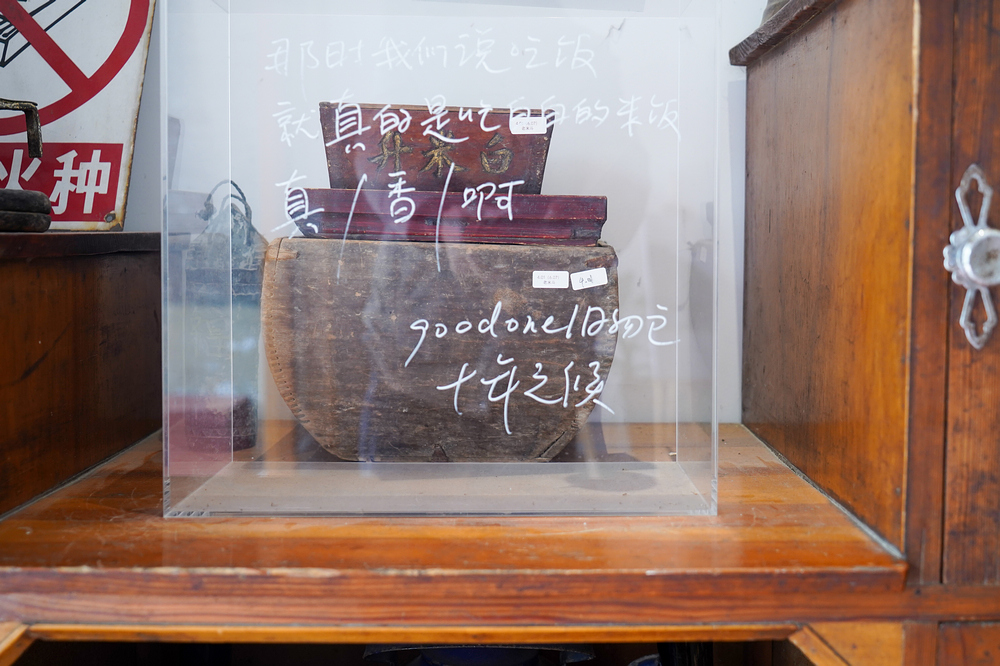 那时我们说吃饭
就真的是吃白白的米饭
真/香/啊
goodone旧物仓
十年之候
升米白
火种